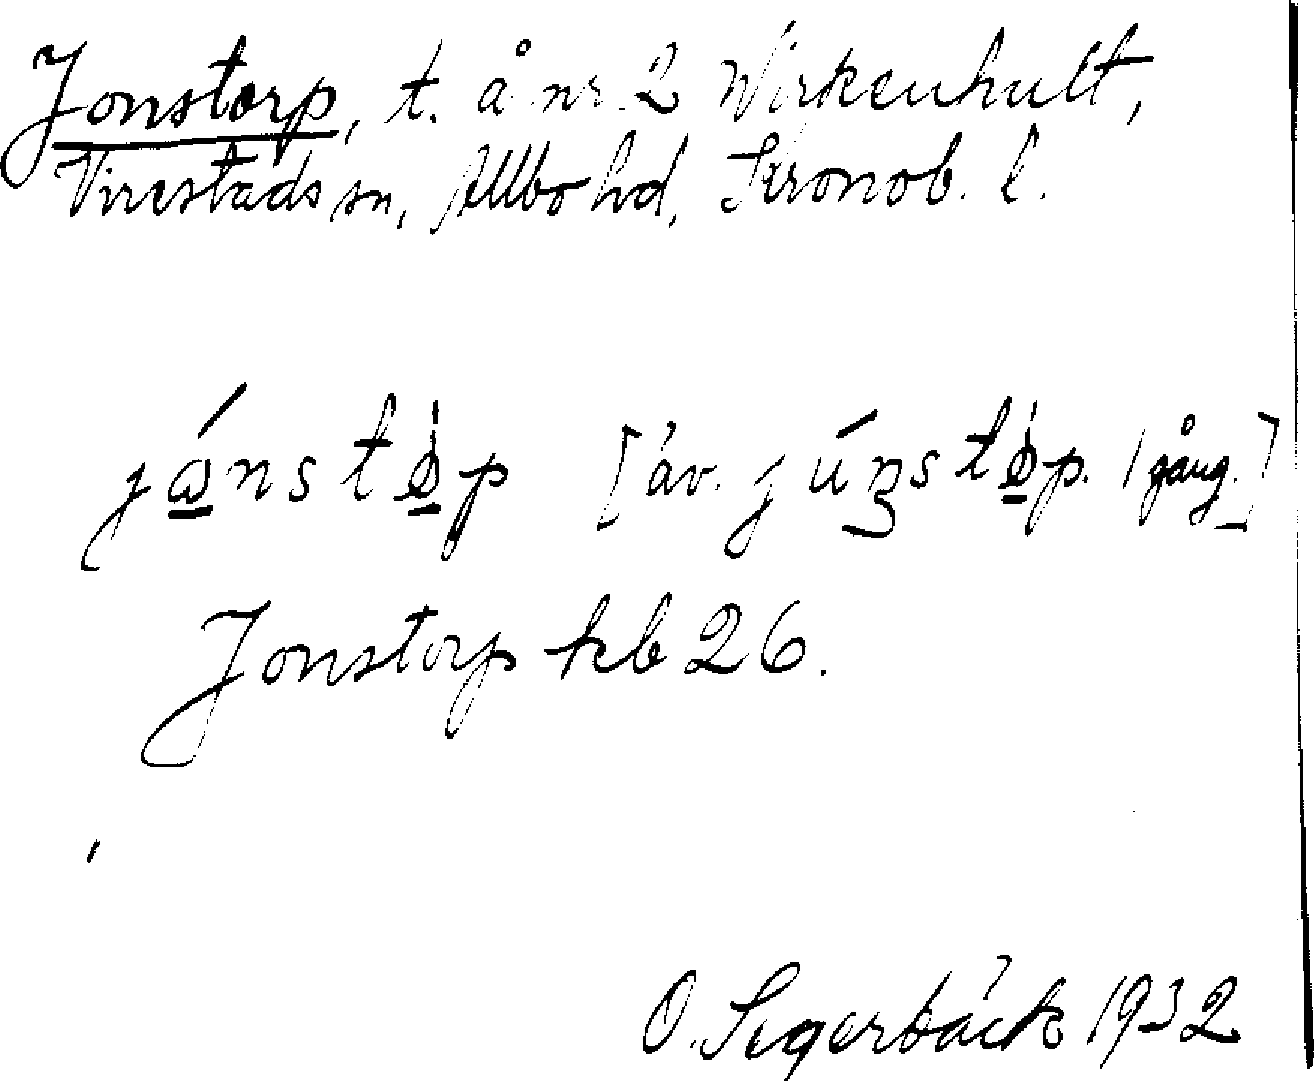 Jonstorp, t. å nr 2 Wirkenhult,
Virestads sn, Allbo hd, Kronob. l.
[áv. 1 gång.]
Jonstorp kb 26.
O. Segerbäck 1932